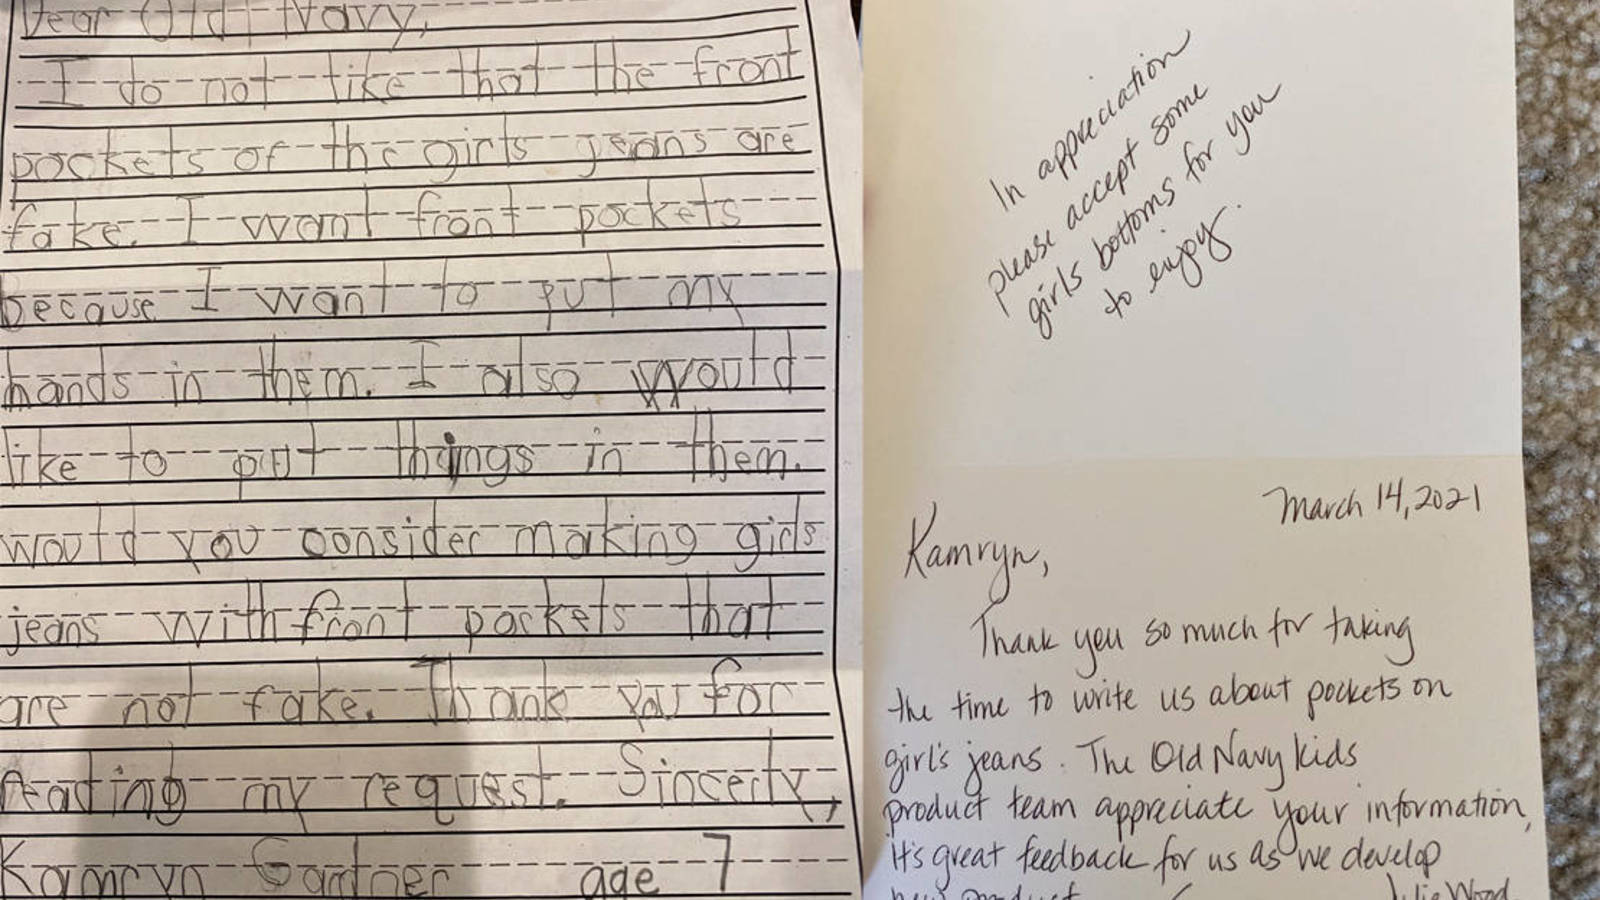 Dear Old Navy,
I do not like that the front
pockets of the girls jeans are
fake. I want front pockets
because I want to put my
hands in them. I also would
like to put things in them.
would you consider making girls
jeans with front pockets that
are not fake. Thank you for
reading my request. Sincerly,
Kamryn Gardner age 7
In appreciation
please accept some
girls bottoms for you
to enjoy.
March 14, 2021
Kamryn,
Thank you so much for taking
the time to write us about pockets on
girl's jeans. The Old Navy kids
product team appreciate your information,
it's great feedback for us as we develop
new product
Julie Wood